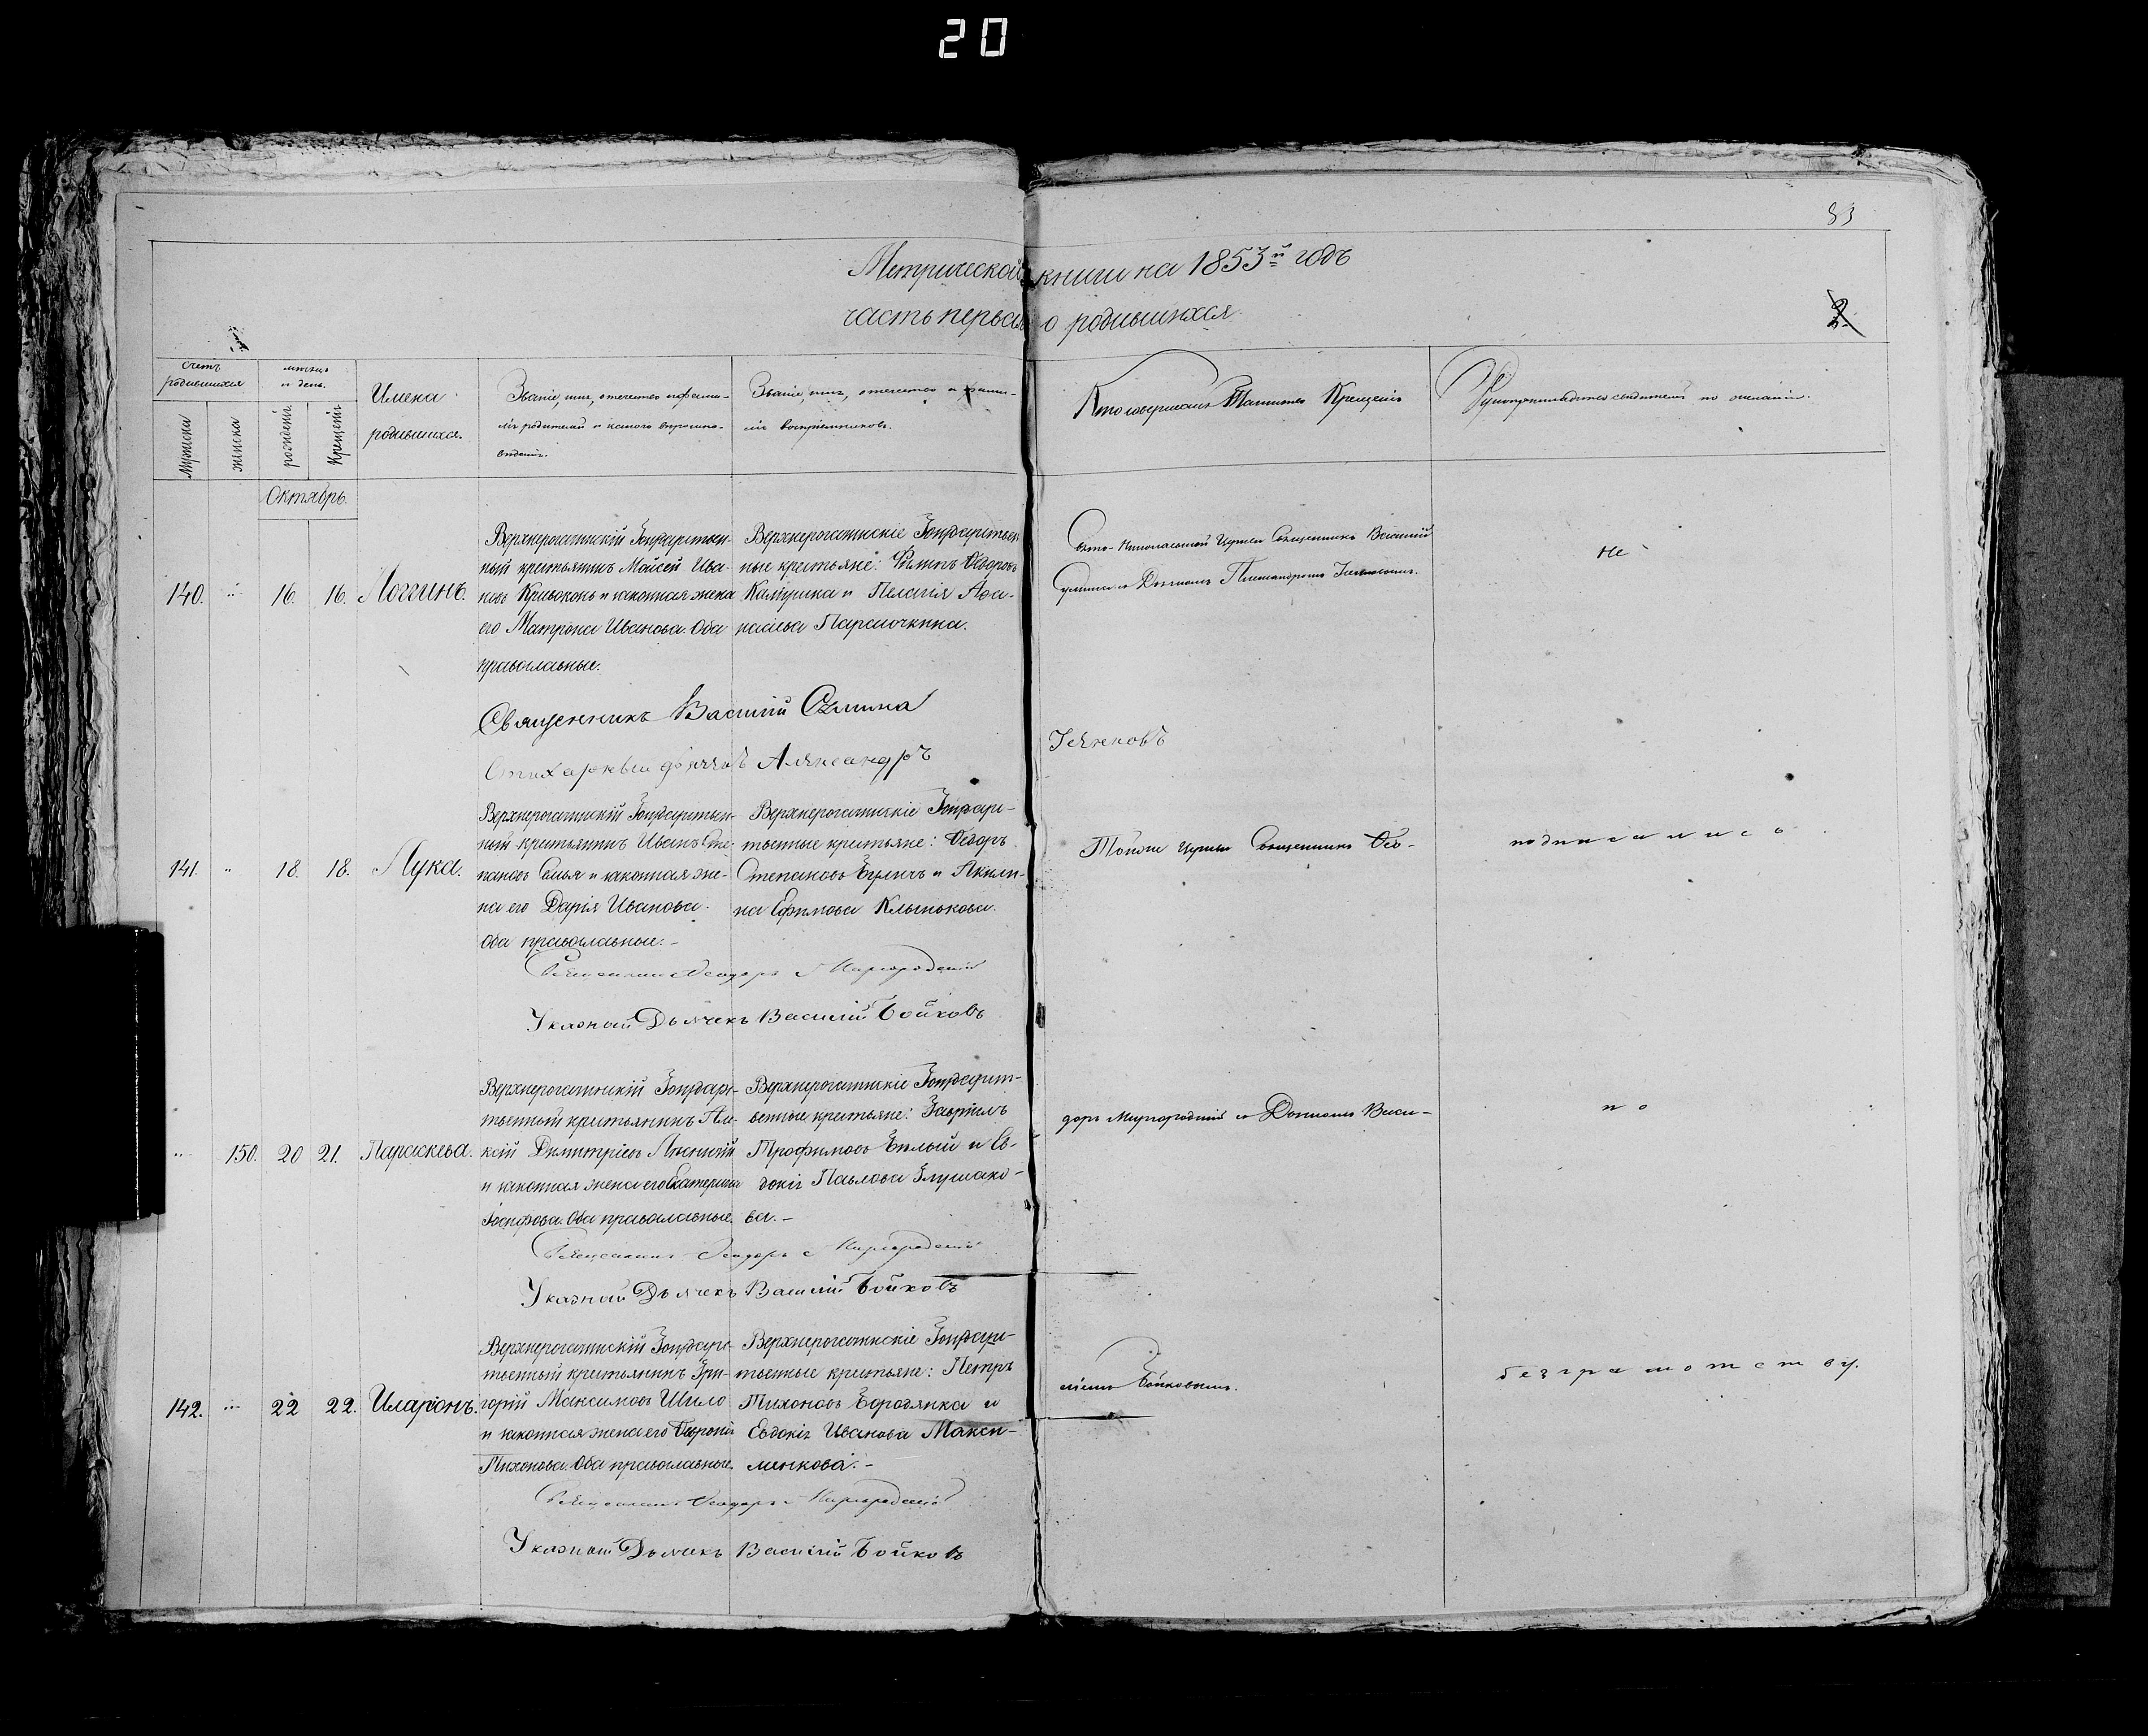 20
83
Метрической книги на 1853й годъ
часть первая о родившихся
2.
Счетъ родившихся
мѣсяцъ и день.
Имена родившихся.
Званіе, имя, отечество и фами-
лія родителей и какого вѣроиспо-
вѣданія.
Званіе, имя, отечество и фами-
лія воспріемниковъ.
Кто совершалъ Таинство Крещенія
Рукоприкладство свидѣтелей по желанію.
мужска
женска
рожденія
крещенія
Октябрь.
140.
16.
16.
Логгинъ.
Верхнерогачинскій Государствен-
ный крестьянинъ Моѵсей Ива-
новъ Кривоконь и законная жена
его Матрона Иванова. Оба
православные.
Верхнерогачинскіе Государствен
ные крестьяне: Филипъ Ѳедоровъ
и Пелагія Аѳа-
насіева
Свято-Николаевской Церкви Священникъ Василій
и Дьячкомъ Александромъ
не
Священникъ Василій
Стихарный дьячекъ Александръ
141.
18.
18.
Лука.
Верхнерогачинскій Государствен-
ный крестьянинъ Иванъ Сте-
пановъ и законная же-
на его Дарія Иванова.
Оба православные.-
Верхнерогачинскіе Государс-
твенные крестьяне: Ѳедоръ
Степановъ и Акили-
на Ефимова Клынькова.
Тойже Церкви Священникъ Ѳео-
подписались
Священникъ Ѳеодоръ Миргородскій
Указный Дьячекъ Василій Бойковъ
150.
20
21.
Параскева.
Верхнерогачинскій Государс-
твенный крестьянинъ Але-
ксій Димитріевъ
и законная жена его Екатерина
Іосифова. Оба православные.
Верхнерогачинскіе Государст-
венные крестьяне: Гавріилъ
Трофимовъ Бѣлый и Ев-
докія Павлова Глушако-
ва.-
доръ Миргородскій и Дьячкомъ Васи-
по
Священникъ Ѳеодоръ Миргородскій
Указный Дьячекъ Василій Бойковъ
142.
22
22.
Иларіонъ.
Верхнерогачинскій Государс-
твенный крестьянинъ Гри-
горій Максимовъ Шило
и законная жена его
Тихонова. Оба православные.
Верхнерогачинскіе Государс-
твенные крестьяне: Петръ
Тихоновъ Бородянка и
Евдокія Иванова Макси-
менкова.-
ліемъ Бойковымъ.
безграмотству.
Священникъ Ѳеодоръ Миргородскій
Указный Дьячекъ Василій Бойковъ